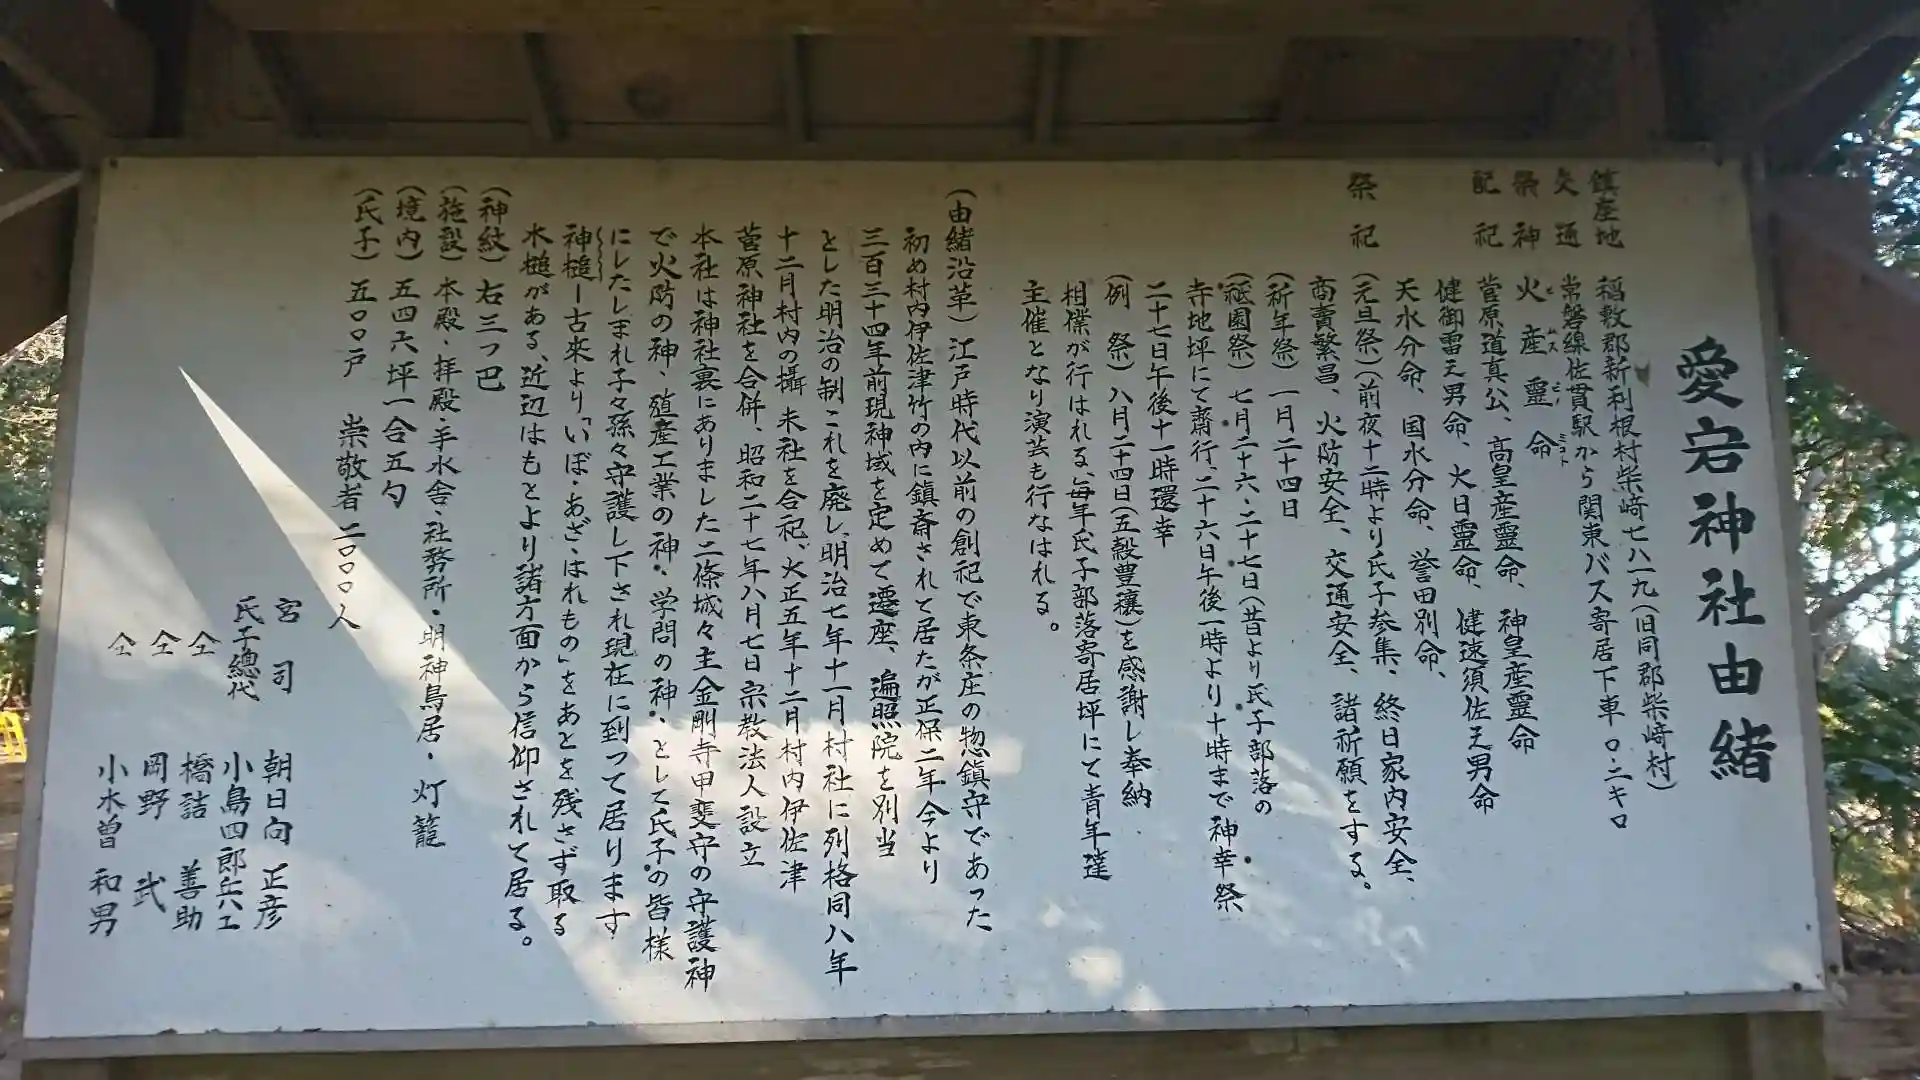 愛宕神社由緒
鎮座地 稲敷郡新利根村柴﨑七八一九(旧同郡柴﨑村)
交通 常磐線佐貫駅から関東バス寄居下車〇・二キロ
祭神 火産霊命
配祀 菅原道真公、高皇産靈命、神皇産靈命
健御雷之男命、火日靈命、健速須佐之男命
天水分命、国水分命、誉田別命、
祭祀 (元旦祭)(前夜十二時より氏子参集、終日家内安全、
商賣繁昌、火防安全、交通安全、諸祈願をする。
(祈年祭)一月二十四日
(祇園祭)七月二十六・二十七日(昔より氏子部落の
寺地坪にて齋行、二十六日午後一時より十時まで神幸祭
二十七日午後十一時還幸
(例祭)八月二十四日(五穀豊穣)を感謝し奉納
相撲が行はれる、毎年氏子部落寄居坪にて青年達
主催となり演芸も行なはれる。
(由緒沿革)江戸時代以前の創祀で東条庄の惣鎮守であった
初め村内伊佐津竹の内に鎮斎されて居たが正保二年今より
三百三十四年前現神域を定めて遷座、遍照院を別当
とした明治の制これを廃し、明治七年十一月村社に列格同八年
十二月村内の攝末社を合祀、大正五年十二月村内伊佐津
菅原神社を合併、昭和二十七年八月七日宗教法人設立
本社は神社裏にありました二條城々主金剛寺甲斐守の守護神
で火防の神、殖産工業の神、学問の神、として氏子の皆様
にしたしまれ子々孫々守護し下され現在に到って居ります
神槌ー古来より「いぼ・あざ・はれもの」をあとを残さず取る
木槌がある、近辺はもとより諸方面から信仰されて居る。
(神紋)右三つ巴
(施設)本殿・拝殿・手水舎・社務所・明神鳥居・灯籠
(境内)五四六坪一合五勺
(氏子)五〇〇戸 崇敬者二〇〇〇人
宮司 朝日向 正彦
氏子總代 小島四郎兵エ
仝 橋詰 善助
仝 岡野 武
仝 小木曽 和男